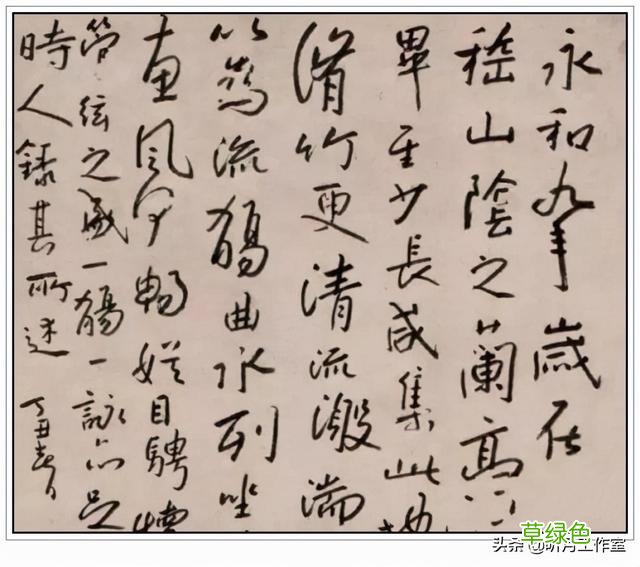 永和九年歲在
稽山陰之蘭
畢至少長咸集此地
脩竹更清流激湍
以為流觴曲水列坐
惠風和暢娛目騁懷
管絃之盛一觴一詠亦足
時人錄其所述 丁丑春日
草绿色
头条 @明月工作室